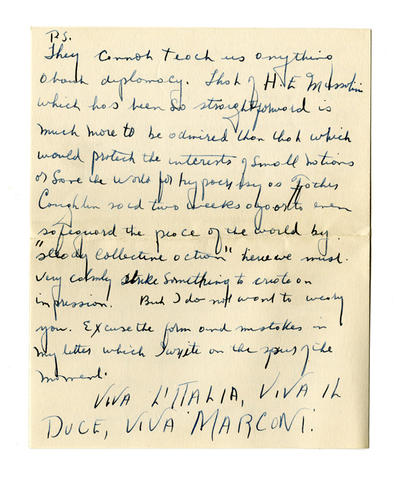 P.S.
They cannot teach us anything
about diplomacy. That of H. E Mussolini
which has been so straightforward is
much more to be admired than that which
would protect the interests of small nations
or save the world for hypocrisy as Father
Coughlin said two weeks ago or to even
safeguard the peace of the world by
"steady collective action" here we must
very calmly strike something to create an
impression. But I do not want to weary
you. Excuse the form and mistakes in
my letter which I write on the spur of the
moment.
VIVA L'ITALIA, VIVA IL
DUCE, VIVA MARCONI.